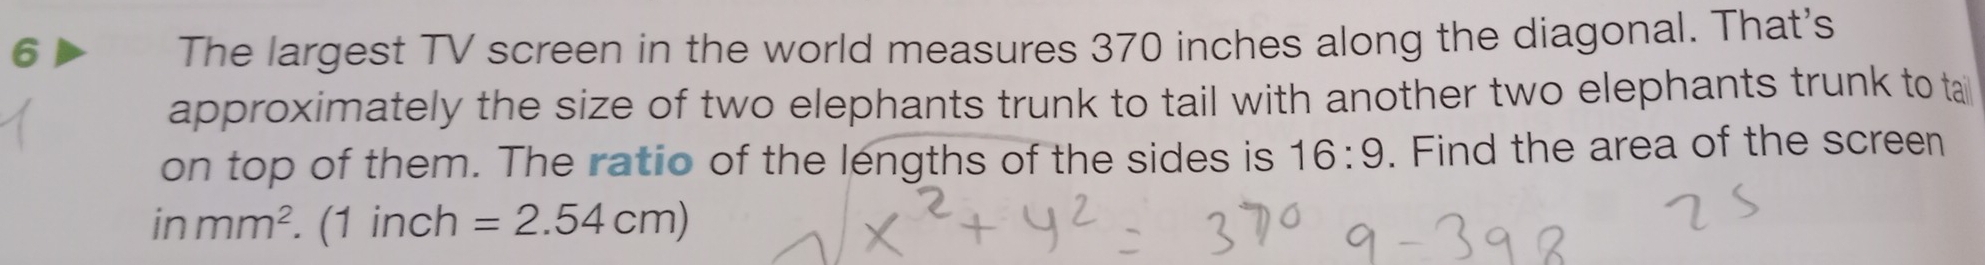 6 ▶ The largest TV screen in the world measures 370 inches along the diagonal. That's
approximately the size of two elephants trunk to tail with another two elephants trunk to tail
on top of them. The ratio of the lengths of the sides is 16:9. Find the area of the screen
in mm². (1 inch = 2.54 cm)
√x² + y² = 370 9-398 25